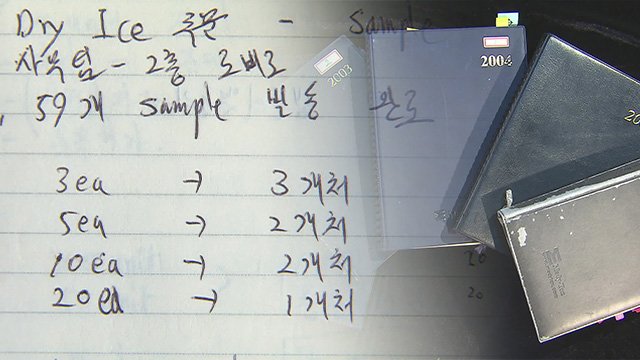 Dry Ice 주문 - Sample
사육팀 - 2층 로비로
59개 sample 발송 완료
3ea → 3개처
5ea → 2개처
10ea → 2개처
20ea → 1개처
2003
2004